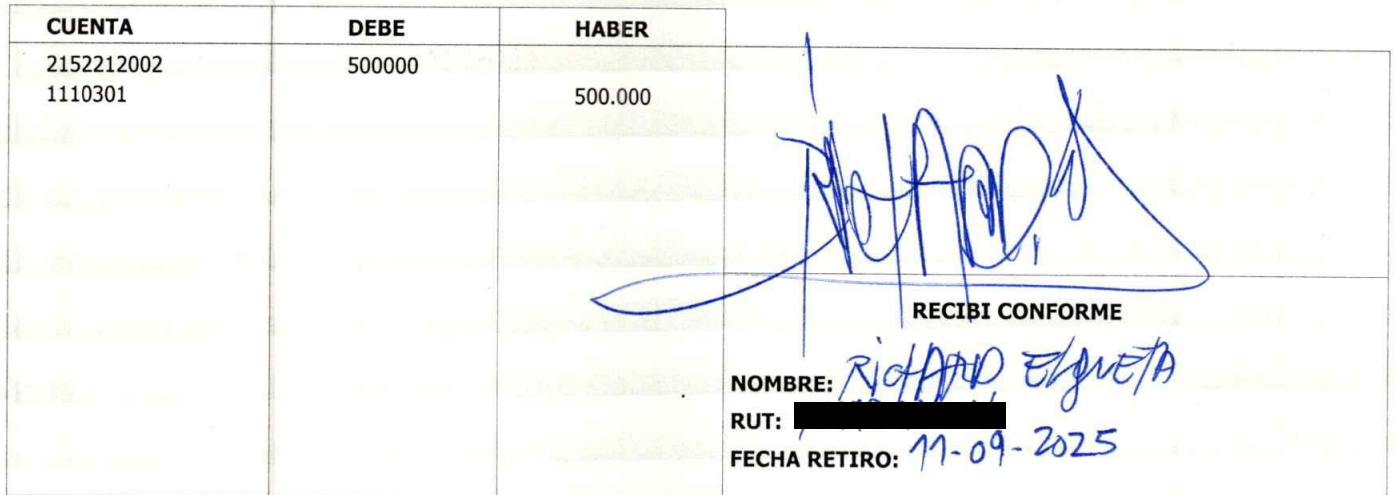 CUENTA DEBE HABER
2152212002 500000
1110301 500.000
RECIBI CONFORME
NOMBRE: RicHARD ElgueTA
RUT:
FECHA RETIRO: 11-09-2025